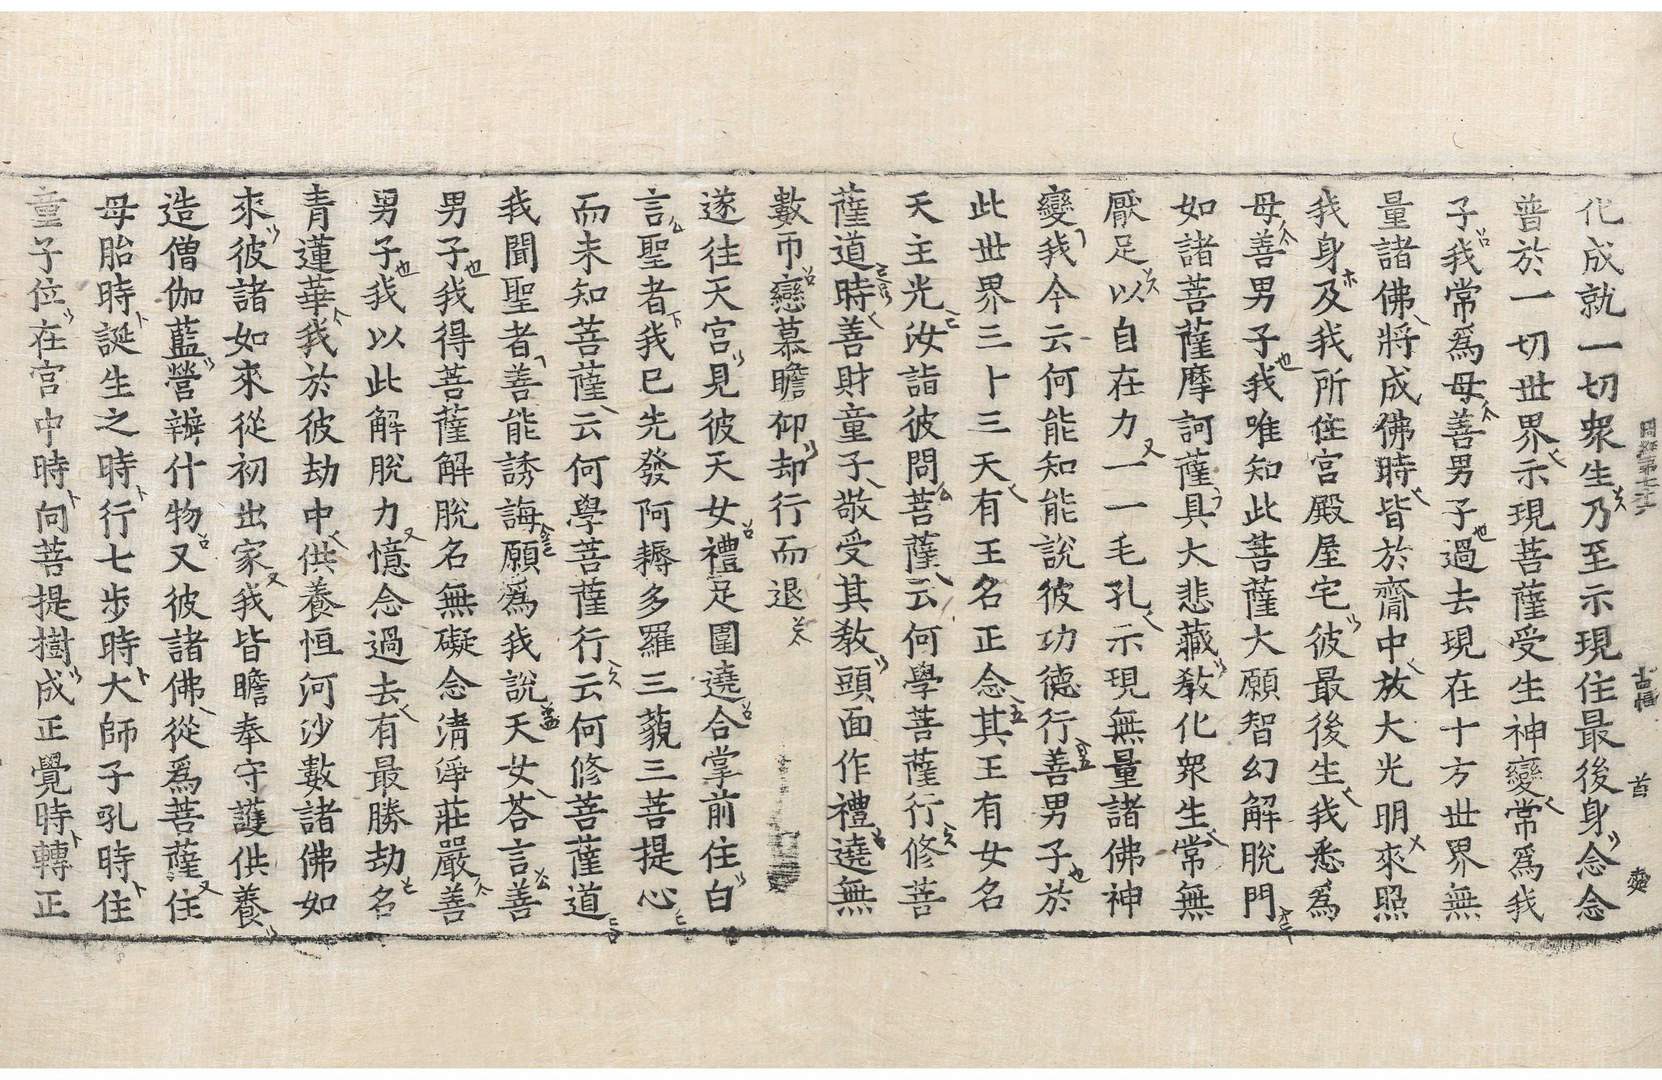 化成就一切衆生乃至示現住最後身念念
普於一切世界示現菩薩受生神變常爲我
子我常爲母善男子過去現在十方世界無
量諸佛將成佛時皆於齊中放大光明來照
我身及我所住宮殿屋宅彼最後生我悉爲
母善男子我唯知此菩薩大願智幻解脫門
如諸菩薩摩訶薩具大悲藏敎化衆生常無
厭足以自在力一一毛孔示現無量諸佛神
變我今云何能知能說彼功德行善男子於
此世界三十三天有王名正念其王有女名
天主光汝詣彼問菩薩云何學菩薩行修菩
薩道時善財童子敬受其敎頭面作禮遶無
數帀戀慕瞻仰却行而退
遂往天宮見彼天女禮足圍遶合掌前住白
言聖者我已先發阿耨多羅三藐三菩提心
而未知菩薩云何學菩薩行云何修菩薩道
我聞聖者善能誘誨願爲我說天女荅言善
男子我得菩薩解脫名無礙念淸淨莊嚴善
男子我以此解脫力憶念過去有最勝劫名
靑蓮華我於彼劫中供養恒河沙數諸佛如
來彼諸如來從初出家我皆瞻奉守護供養
造僧伽藍營辦什物又彼諸佛從爲菩薩住
母胎時誕生之時行七步時大師子吼時住
童子位在宮中時向菩提樹成正覺時轉正